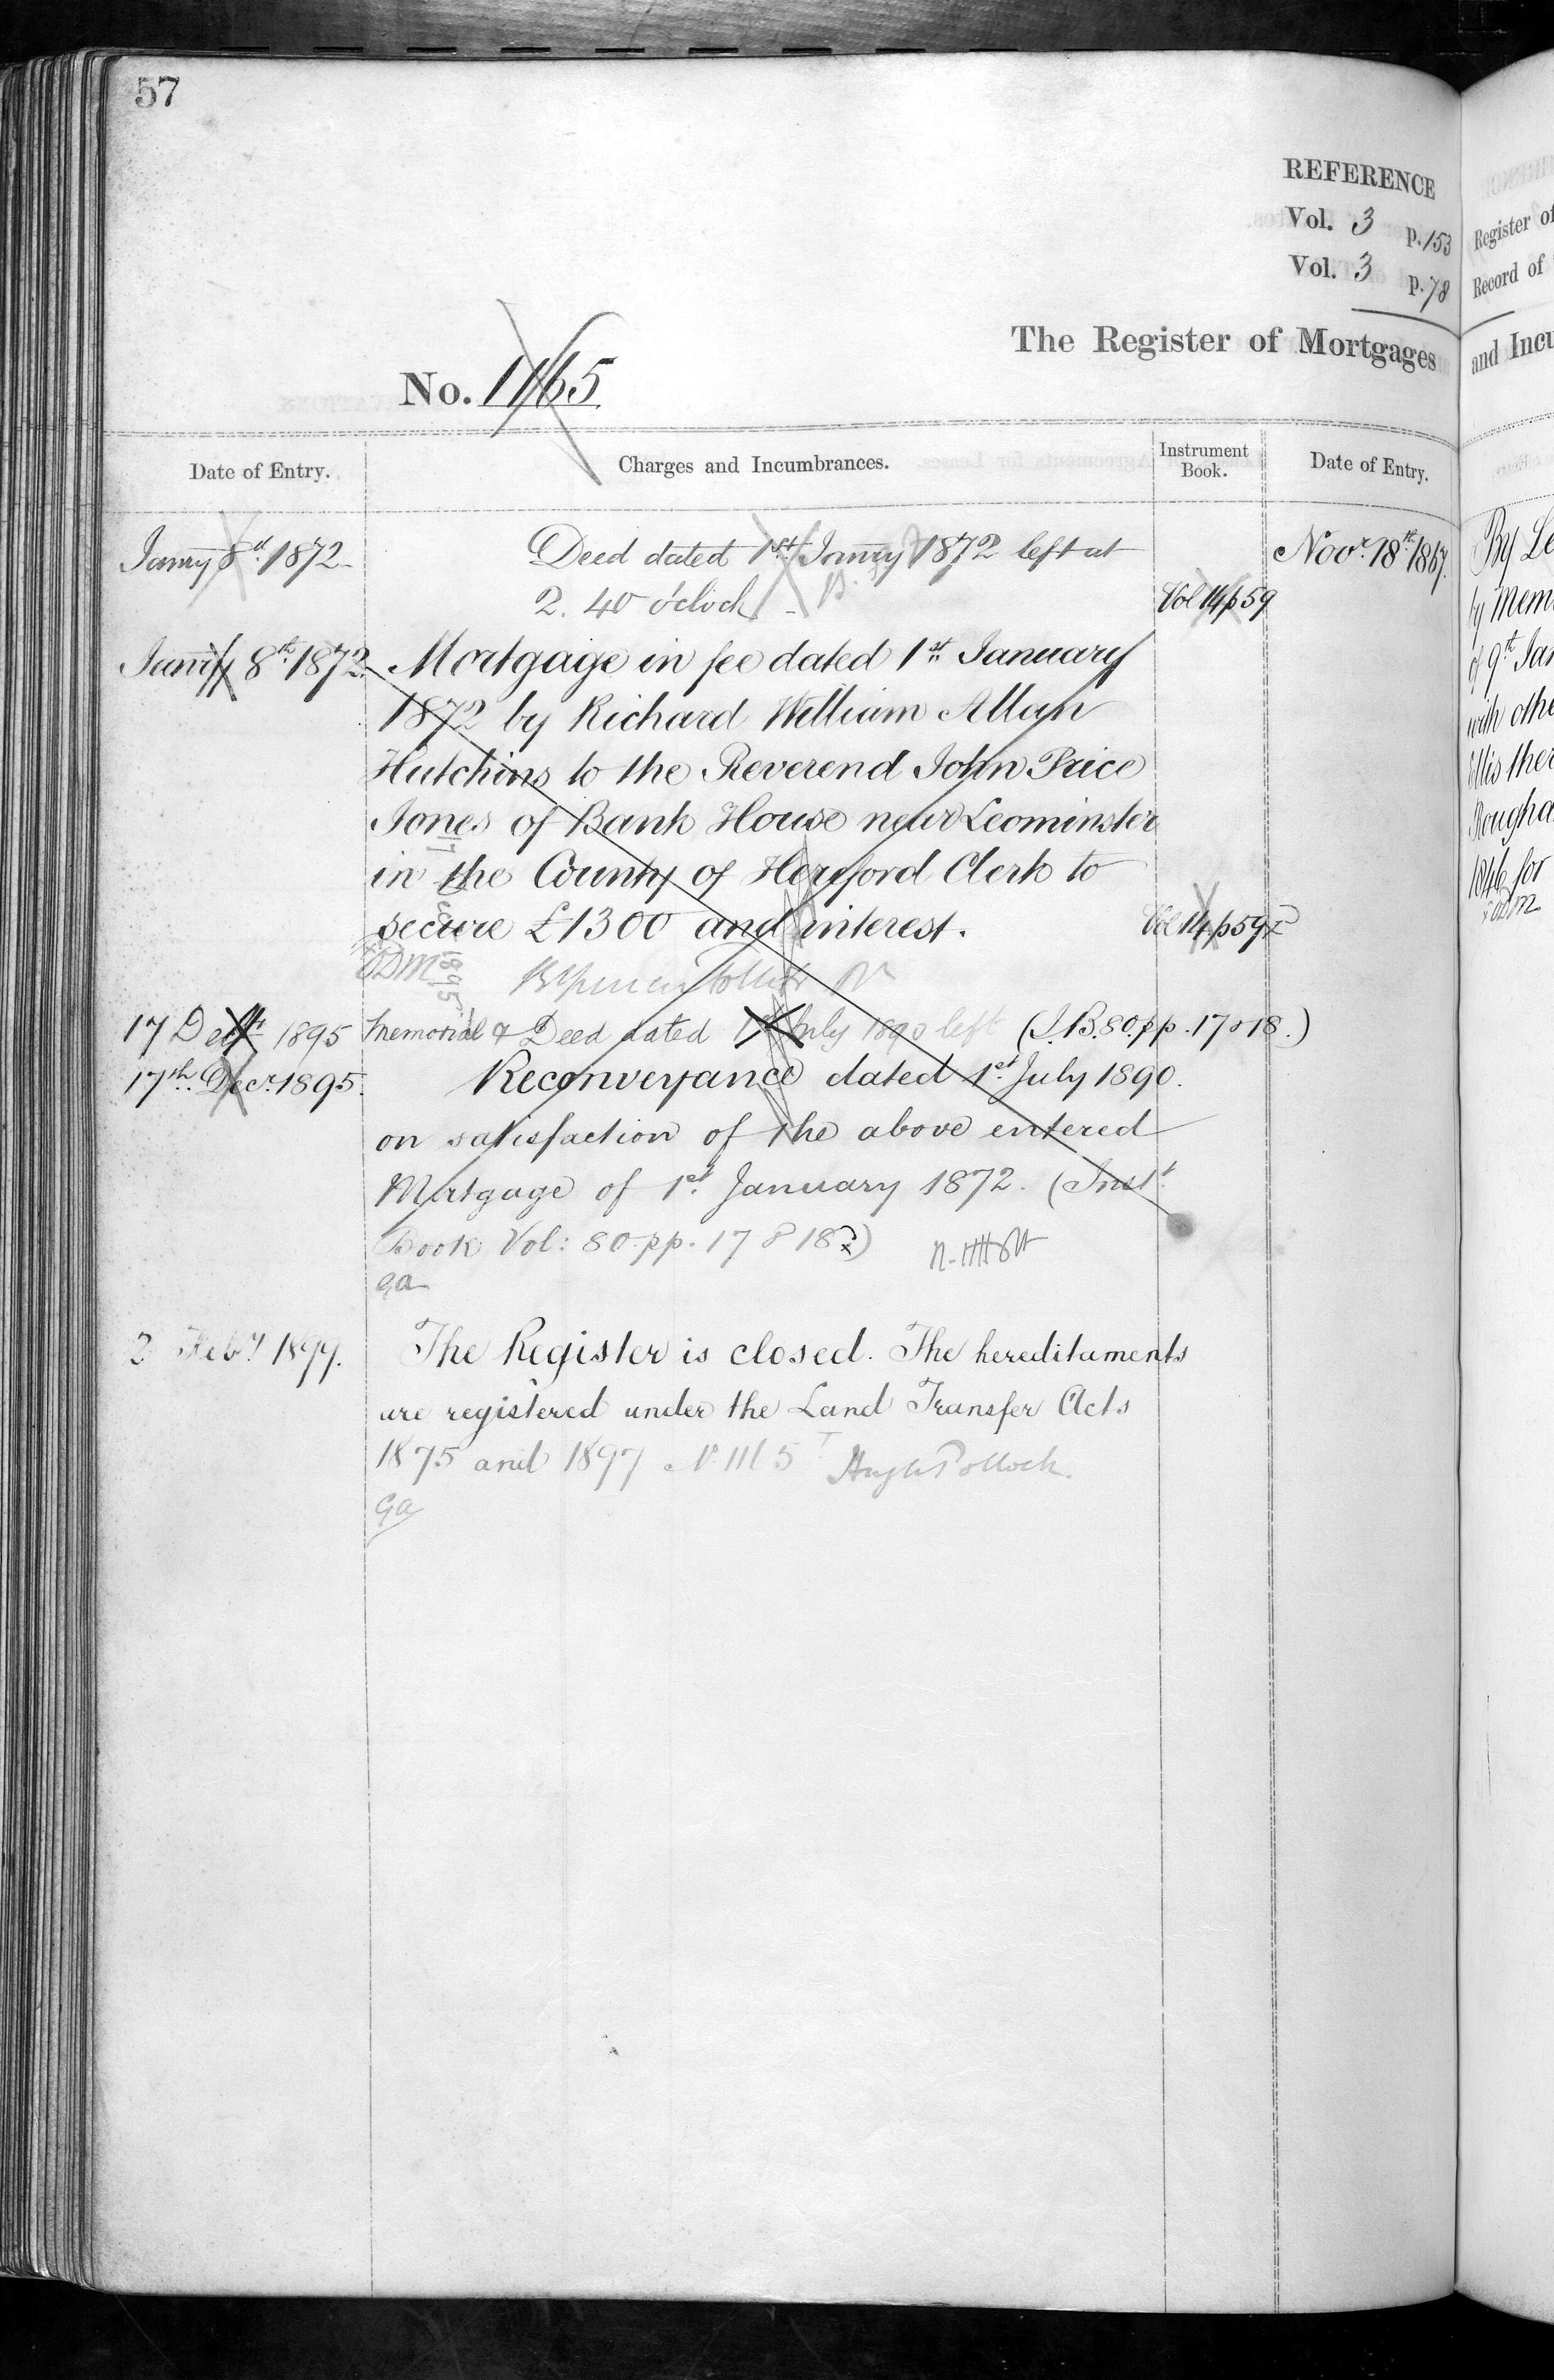 57
REFERENCE
Vol. 3 p. 153
Vol. 3 p. 78
The Register of Mortgages
No. 1165
Date of Entry. Charges and Incumbrances. Instrument Book. Date of Entry.
Janry 8th 1872 Deed dated 1st Janry 1872 left at
2. 40 o'clock Vol 14 p 59
Novr. 18th 1867.
Janry 8th 1872. Mortgage in fee dated 1st January
1872 by Richard William Allan
Hutchins to the Reverend John Price
Jones of Bank House near Leominster
in the County of Hereford Clerk to
secure £1300 and interest. Vol 14 p 59
ODM 1895
17 Dec 1895 Memorial & Deed dated 1st July 1890 left (I.B. 80. pp. 17 & 18.)
17th Decr. 1895. Reconveyance dated 1st July 1890.
on satisfaction of the above entered
Mortgage of 1st January 1872. (Inst.
Book Vol: 80. pp. 17 & 18)
ga
2 Feby 1899. The Register is closed. The hereditaments
are registered under the Land Transfer Acts
1875 and 1897 No. 1165 Hugh Pollock.
ga
Register of
Record of
and Incu
By Le
by Mem
of 9th Jan
with othe
Ellis ther
Rougha
1846 for